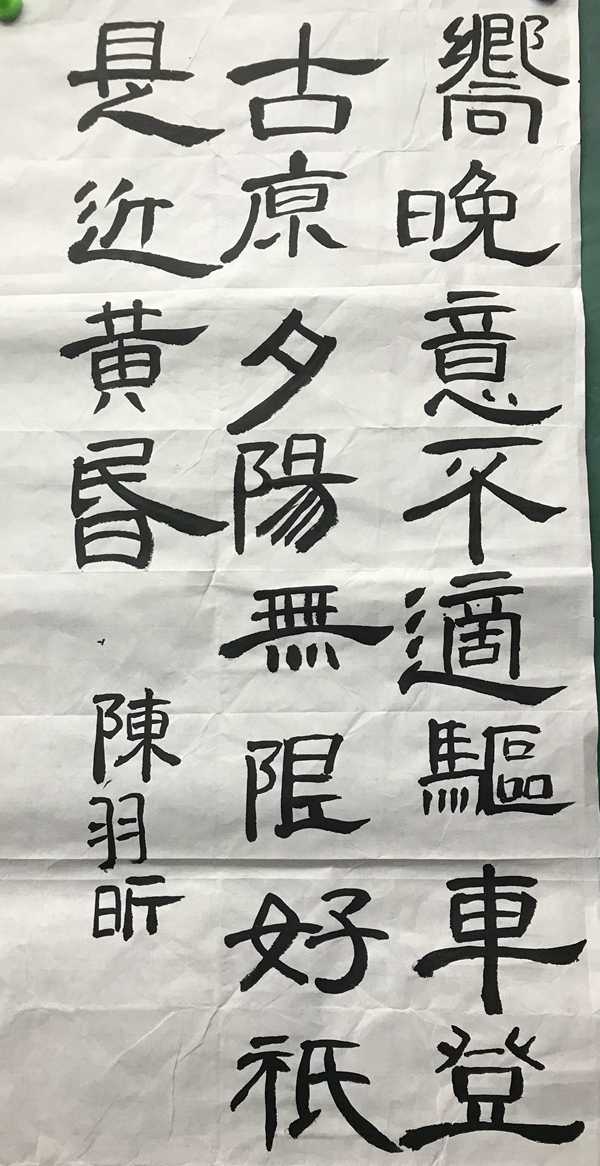 嚮晚意不適驅車登
古原夕陽無限好祇
是近黃昬
陳羽昕